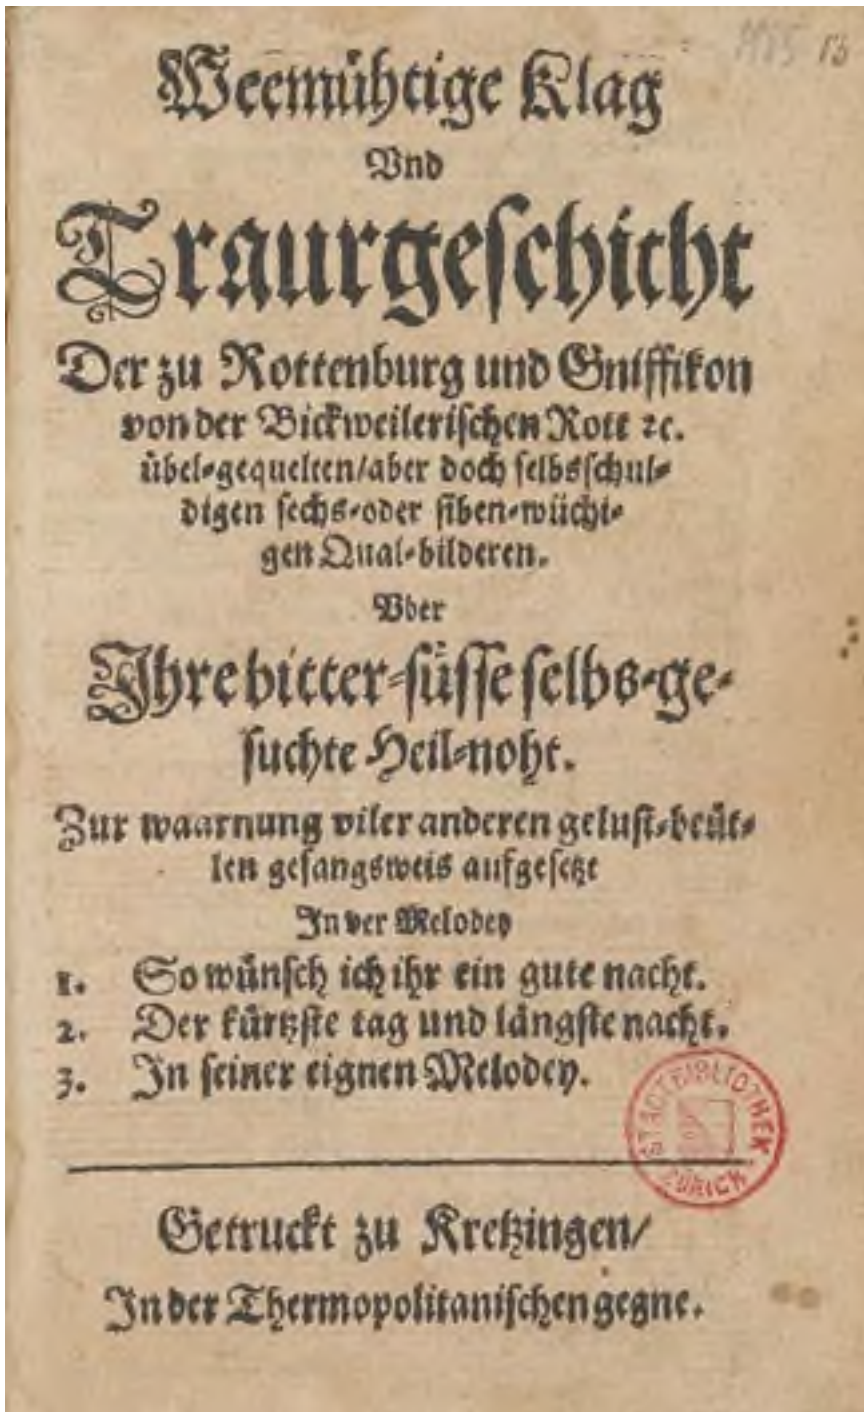 Weemühtige Klag
Vnd
Traurgeschicht
Der zu Rottenburg und Gniffikon
von der Bickweilerischen Rott ꝛc.
übel-gequelten/aber doch selbsschul-
digen sechs-oder siben-wüchi-
gen Qual-bilderen.
Vber
Ihre bitter-süsse selbs-ge-
suchte Heil-noht.
Zur waarnung viler anderen gelust-beüt-
len gesangsweis aufgesetzt
In der Melodey
1. So wünsch ich ihr ein gute nacht.
2. Der kürtzste tag und längste nacht.
3. In seiner eignen Melodey.
STADTBIBLIOTHEK
ZÜRICH
Getruckt zu Kretzingen/
In der Thermopolitanischen gegne.